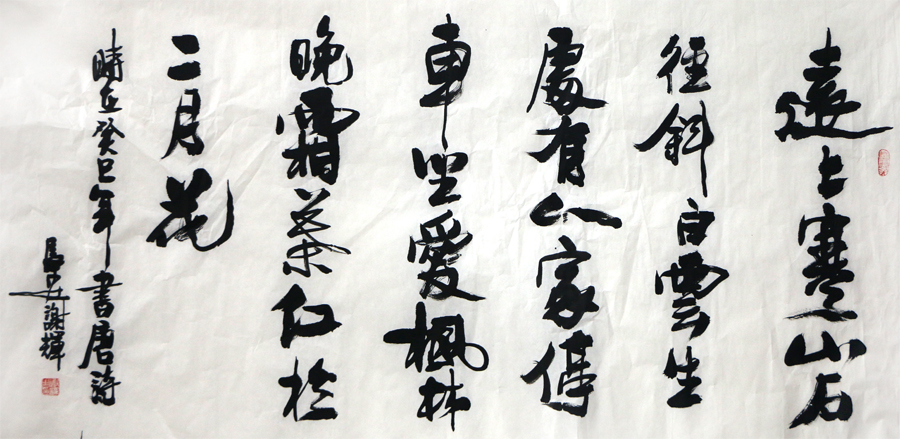 遠上寒山石
徑斜白雲生
處有人家停
車坐愛楓林
晚霜葉紅於
二月花
時在癸巳年書唐詩
謝輝